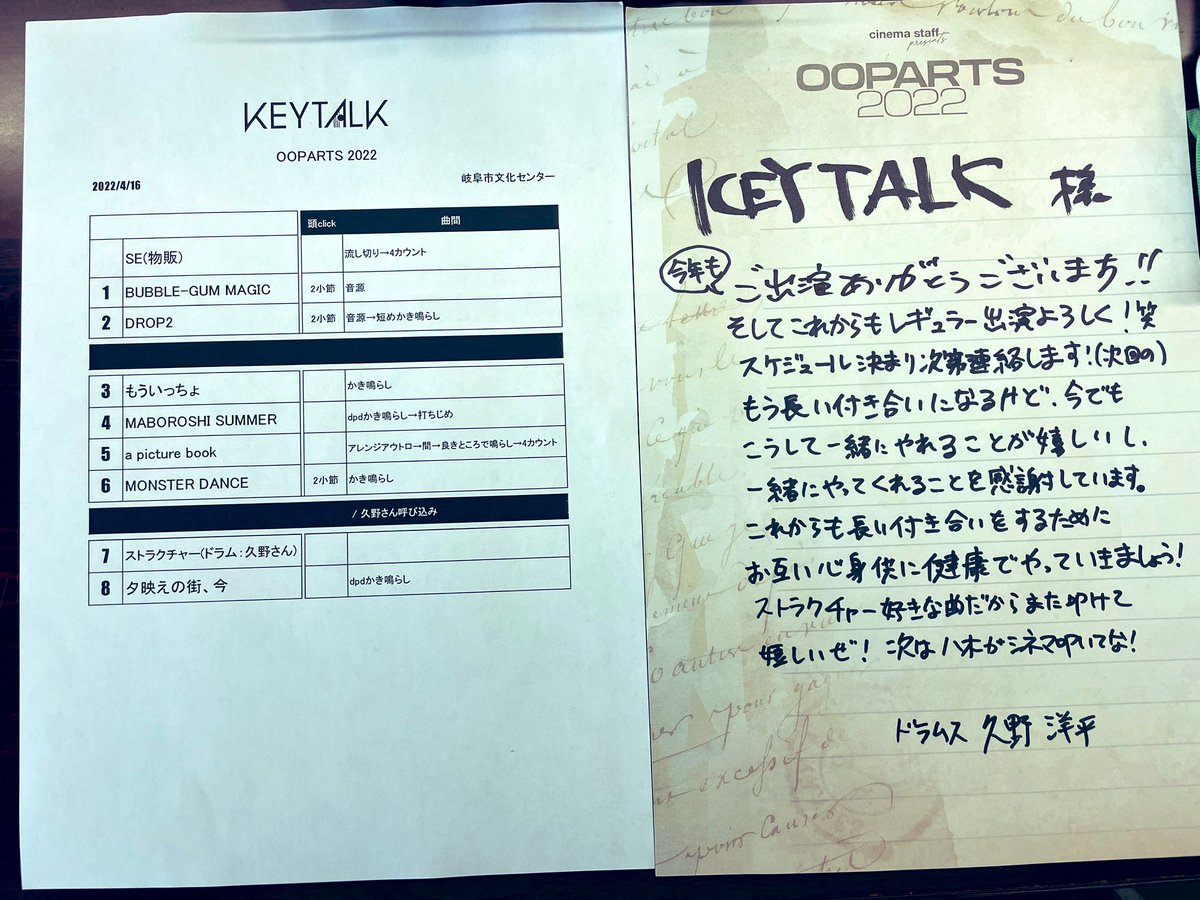 KEYTALK
OOPARTS 2022
2022/4/16 岐阜市文化センター
頭click 曲間
SE(物販) 流し切り→4カウント
1 BUBBLE-GUM MAGIC 2小節 音源
2 DROP2 2小節 音源→短めかき鳴らし
3 もういっちょ かき鳴らし
4 MABOROSHI SUMMER dpdかき鳴らし→打ちじめ
5 a picture book アレンジアウトロ→間→良きところで鳴らし→4カウント
6 MONSTER DANCE 2小節 かき鳴らし
/ 久野さん呼び込み
7 ストラクチャー(ドラム：久野さん)
8 夕映えの街、今 dpdかき鳴らし
cinema staff
presents
OOPARTS
2022
KEYTALK 様
今年も
ご出演ありがとうございます!!
そしてこれからもレギュラー出演よろしく!笑
スケジュール決まり次第連絡します!(次回の)
もう長い付き合いになるけど、今でも
こうして一緒にやれることが嬉しいし、
一緒にやってくれることを感謝しています。
これからも長い付き合いをするために
お互い心身供に健康でやっていきましょう!
ストラクチャー好きな曲だからまた叩けて
嬉しいぜ! 次は八木がシネマ叩いてな!
ドラムス 久野 洋平